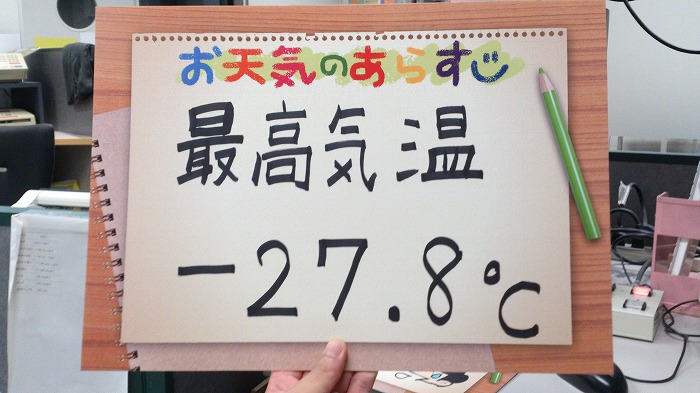 お天気のあらすじ
最高気温
-27.8℃